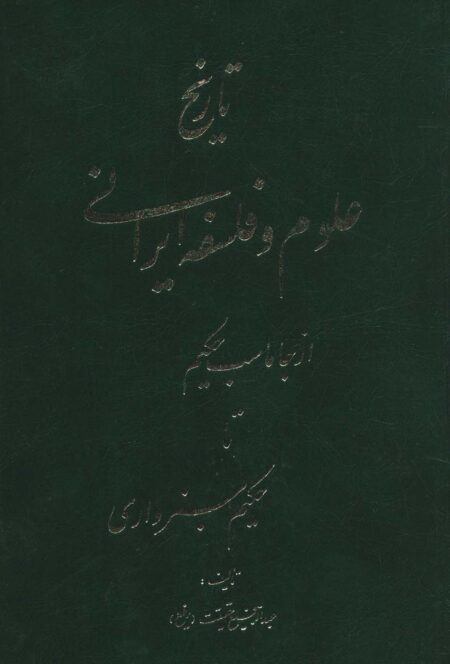 تاریخ
علوم و فلسفه ایرانی
از جاماسب حکیم
تا
حکیم سبزواری
تألیف:
عبدالرفیع حقیقت (رفیع)